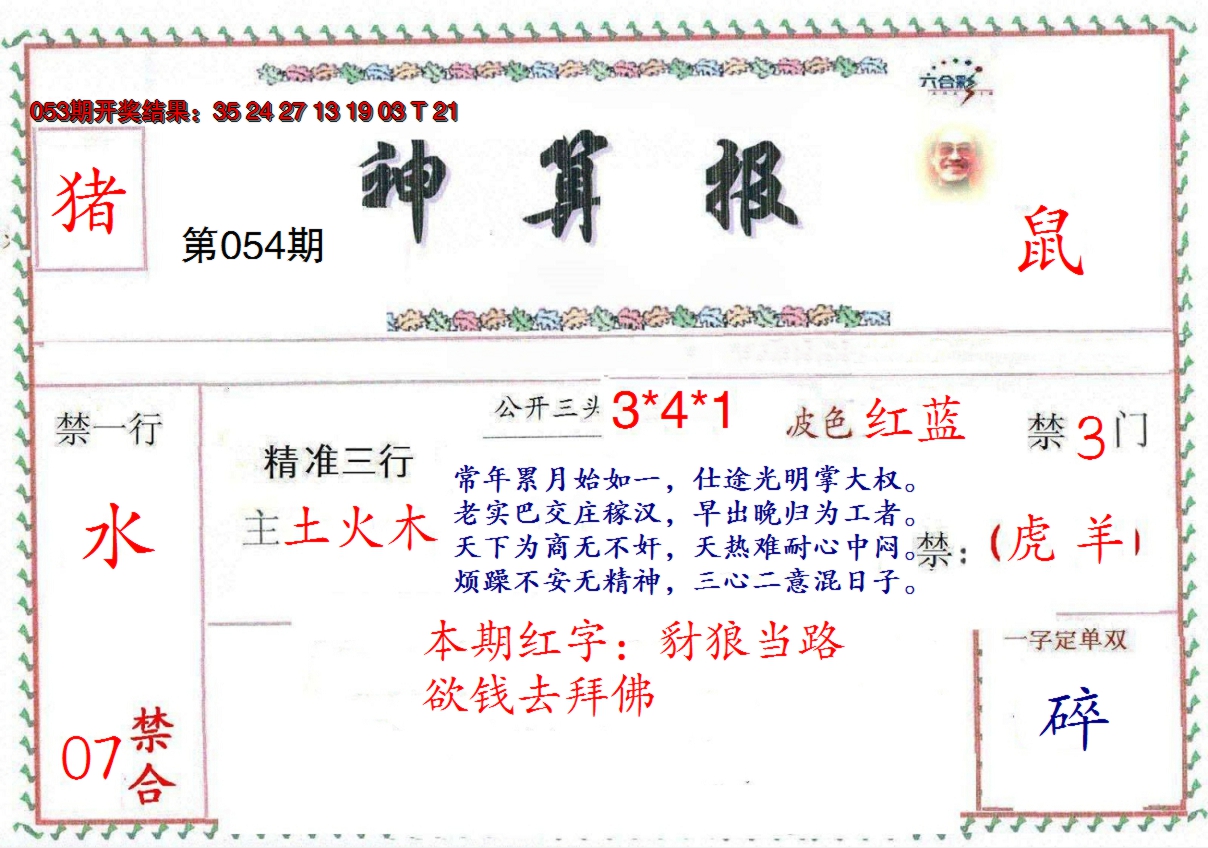 六合彩
053期开奖结果：35 24 27 13 19 03 T 21
神算报
猪
第054期
鼠
禁一行
水
07
禁合
公开三头 3*4*1
波色 红蓝
禁3门
精准三行
主土火木
常年累月始如一，仕途光明掌大权。
老实巴交庄稼汉，早出晚归为工者。
天下为商无不奸，天热难耐心中闷。
烦躁不安无精神，三心二意混日子。
禁：（虎 羊）
本期红字：豺狼当路
欲钱去拜佛
一字定单双
碎